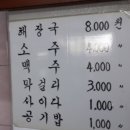 해장국 8.000원
소주 4.000〃
맥주 4.000〃
막걸리 3.000〃
사이다 1.000〃
공기밥 1.000〃